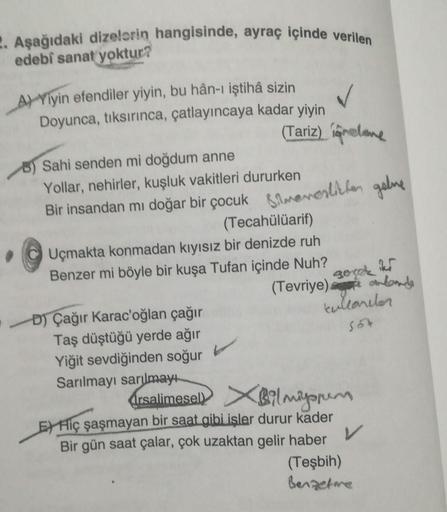 2. Aşağıdaki dizelerin hangisinde, ayraç içinde verilen
edebî sanat yoktur?
A) Yiyin efendiler yiyin, bu hân-ı iştihâ sizin
Doyunca, tıksırınca, çatlayıncaya kadar yiyin
(Tariz) iğneleme
B) Sahi senden mi doğdum anne
Yollar, nehirler, kuşluk vakitleri dururken
Bir insandan mı doğar bir çocuk bilmemezlikten gelme
(Tecahülüarif)
C) Uçmakta konmadan kıyısız bir denizde ruh
Benzer mi böyle bir kuşa Tufan içinde Nuh?
gerçek iki
(Tevriye) anlamda
kullanılan
söz
D) Çağır Karac'oğlan çağır
Taş düştüğü yerde ağır
Yiğit sevdiğinden soğur
Sarılmayı sarılmayı
(İrsalimesel) Bilmiyorum
E) Hiç şaşmayan bir saat gibi işler durur kader
Bir gün saat çalar, çok uzaktan gelir haber
(Teşbih)
Benzetme